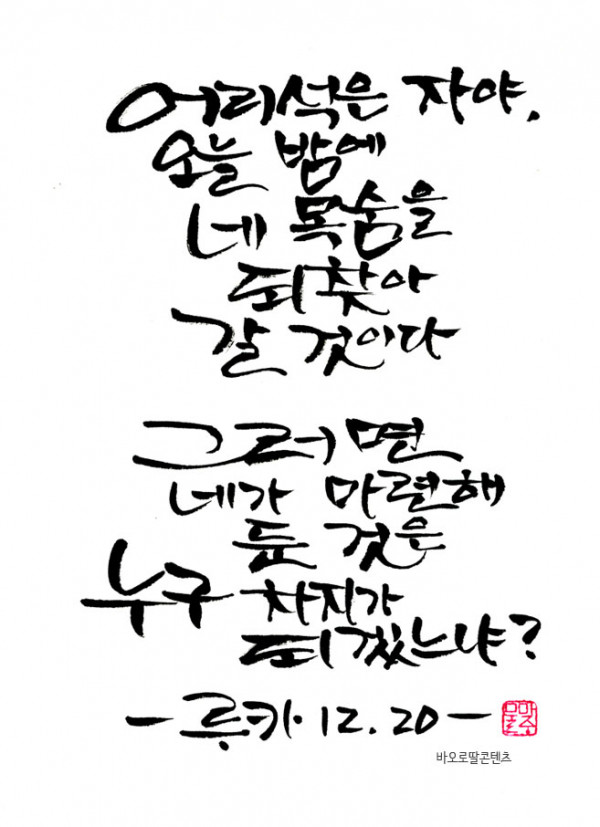 어리석은 자야,
오늘 밤에
네 목숨을
되찾아
갈 것이다
그러면
네가 마련해
둔 것은
누구 차지가
되겠느냐?
- 루카 12.20 -
바오로딸콘텐츠